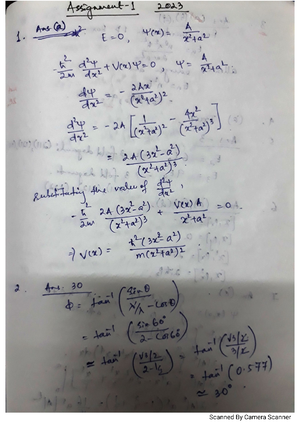 Assignment-1 2023
1. Ans (a) E=0, Ψ(x) = A/(x²+a²)
ħ²/2m d²Ψ/dx² + V(x)Ψ=0, Ψ = A/(x²+a²)
dΨ/dx = - 2Ax/(x²+a²)²
d²Ψ/dx² = -2A [1/(x²+a²)² - 4x²/(x²+a²)³]
= 2A(3x²-a²)/(x²+a²)³
Substituting the value of d²Ψ/dx²,
-ħ²/2m 2A(3x²-a²)/(x²+a²)³ + V(x)A/(x²+a²) =0
⇒ V(x) = ħ²(3x²-a²)/m(x²+a²)²
2. Ans. 30
Φ = tan⁻¹ (sinθ/(λ'/λ - cosθ))
= tan⁻¹ (sin60°/(2-cos60))
≃ tan⁻¹ (√3/2/(2-1/2)) = tan⁻¹ (√3/2/3/2)
= tan⁻¹ (0.577)
≃ 30°.
Scanned By Camera Scanner